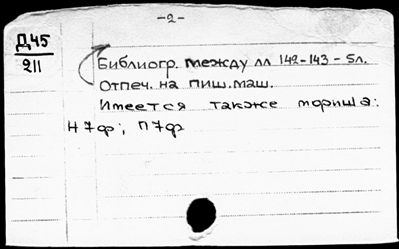 -2-
Д45
211
Библиогр. между лл 142-143 - 5л.
Отпеч. на пиш. маш.
Имеется также
Н7ф; П7ф